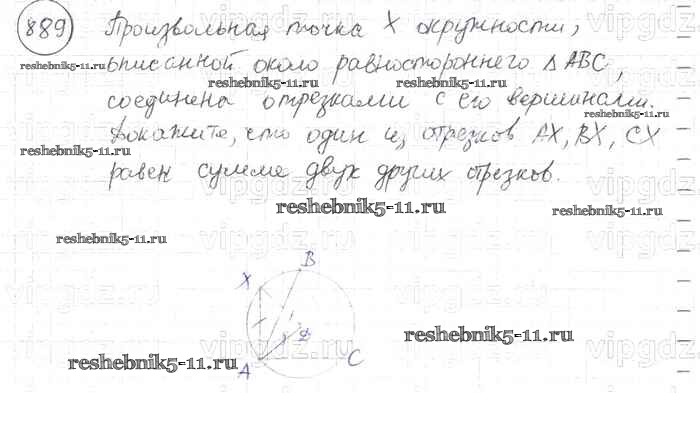 889 Произвольная точка X окружности,
описанной около равностороннего Δ ABC,
reshebnik5-11.ru
reshebnik5-11.ru
соединена отрезками с его вершинами.
reshebnik5-11.ru
Докажите, что один из отрезков AX, BX, CX
reshebnik5-11.ru
равен сумме двух других отрезков.
reshebnik5-11.ru
reshebnik5-11.ru
reshebnik5-11.ru
B
X
reshebnik5-11.ru
reshebnik5-11.ru
A
C
vipgdz.ru